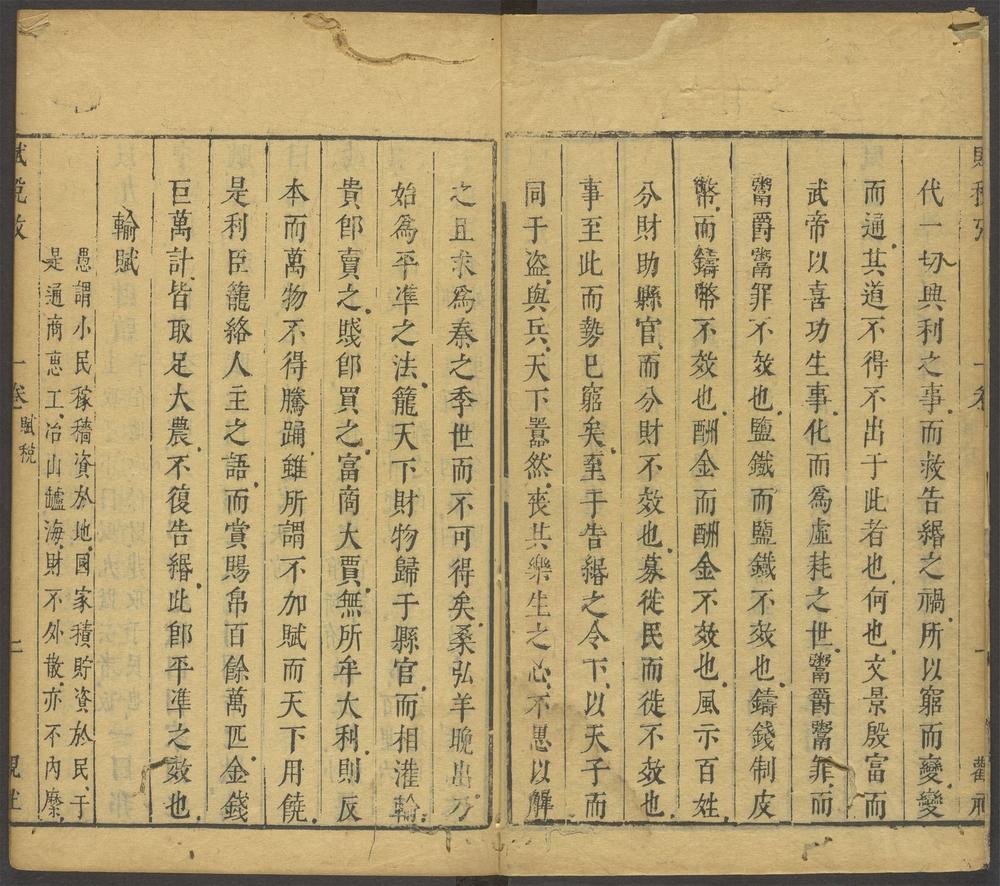 代一切興利之事而救告緡之禍所以窮而變變
而通其道不得不出于此者也何也文景殷富而
武帝以喜功生事化而爲虛耗之世鬻爵鬻罪而
鬻爵鬻罪不效也鹽鐵而鹽鐵不效也鑄錢制皮
幣而鑄幣不效也酬金而酬金不效也風示百姓
分財助縣官而分財不效也募徙民而徙不效也
事至此而勢已窮矣至于告緡之令下以天子而
同于盜與兵天下囂然喪其樂生之心不思以解
之且求爲秦之季世而不可得矣桑弘羊晚出乃
始爲平準之法籠天下財物歸于縣官而相灌輸
貴卽賣之賤卽買之富商大賈無所牟大利則反
本而萬物不得騰踊雖所謂不加賦而天下用饒
是利臣籠絡人主之語而賞賜帛百餘萬匹金錢
巨萬計皆取足大農不復告緡此卽平準之效也
輸賦
愚謂小民稼穡資於地國家積貯資於民于
是通商惠工冶山鑪海財不外散亦不內糜
賦稅攷 一卷 賦稅 二